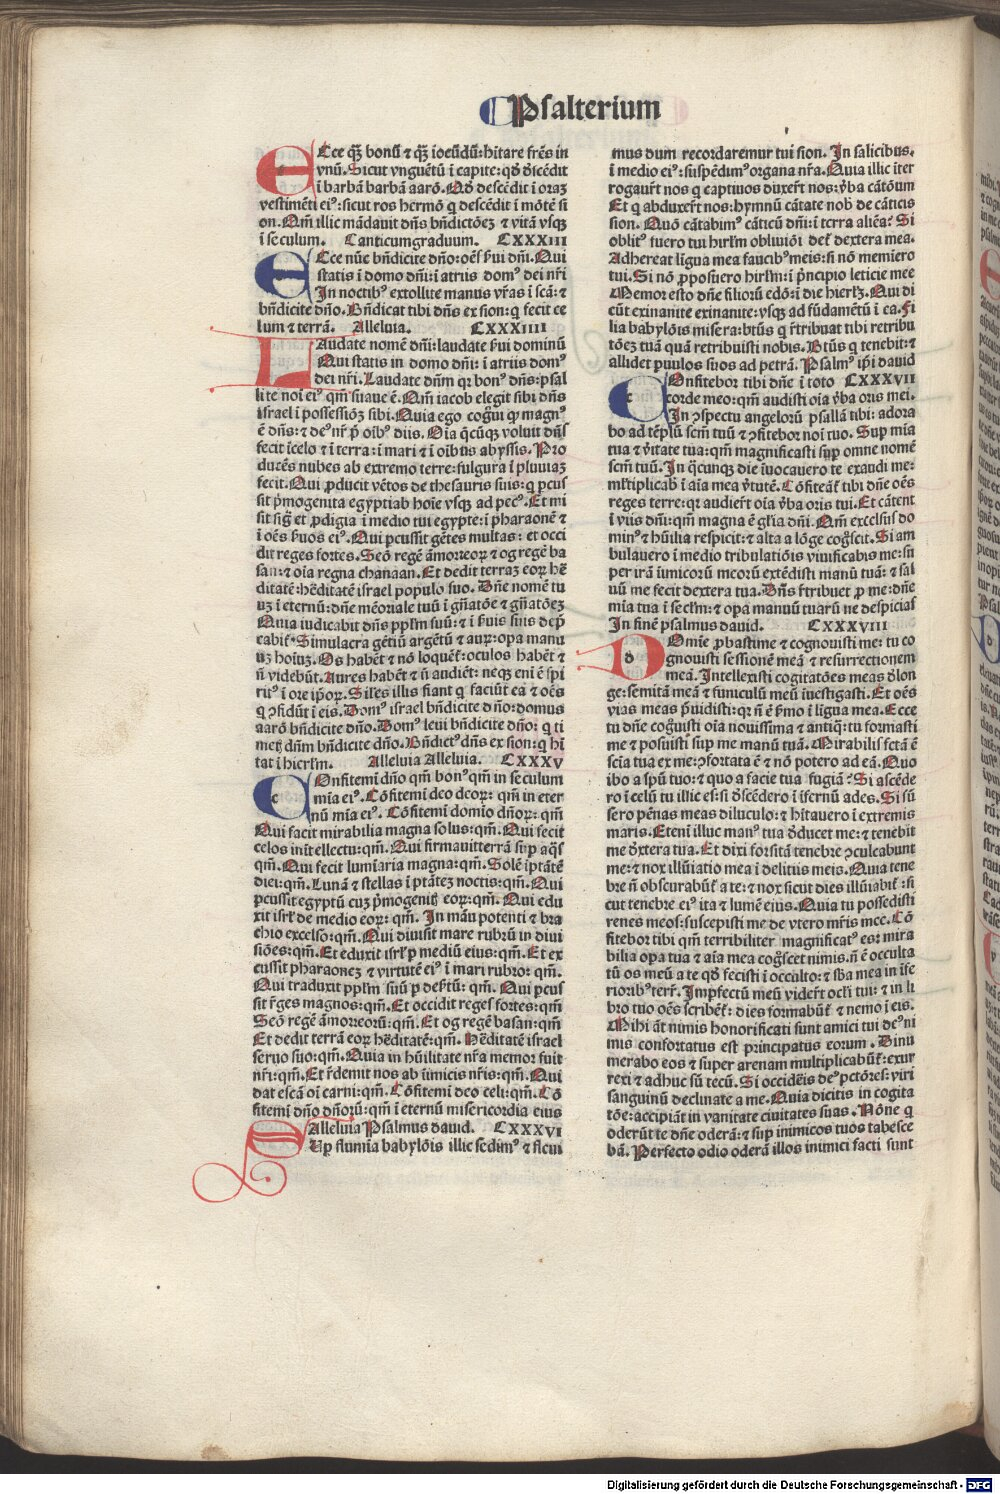 Psalterium
ECce q̃ʒ bonũ ⁊ q̃ʒ iocũdũ: hitare fr̃es in
vnũ. Sicut vnguẽtũ ĩ capite: qđ đscẽdit
ĩ barbã barbã aarõ. Qđ descẽdit ĩ oraʒ
vestimẽti eiꝰ: sicut ros hermõ q descẽdit ĩ mõtẽ si
on. Qm̃ illic mãdauit dñs bñdictõeʒ ⁊ vitã vsqʒ
ĩ seculum. Canticumgraduum. CXXXIII
ECce nũc bñdicite dño: oẽs ẜui dñi. Qui
statis ĩ domo dñi: ĩ atriis domꝰ dei nr̃i
In noctibꝰ extollite manus vr̃as ĩ scã: ⁊
bñdicite dño. Bñdicat tibi dñs ex sion: q fecit ce
lum ⁊ terrã. Alleluia. CXXXIIII
LAudate nomẽ dñi: laudate ẜui dominũ
Qui statis in domo dñi: ĩ atriis domꝰ
dei nr̃i. Laudate dñm qr bonꝰ dñs: psal
lite noĩ eiꝰ qm̃ suaue ẽ. Qm̃ iacob elegit sibi dñs
israel ĩ possessiõʒ sibi. Quia ego cogũi qr magnꝰ
ẽ dñs: ⁊ deꝰ nr̃ p̃ oĩbꝰ diis. Oĩa q̃cũqʒ voluit dñs
fecit ĩ celo ⁊ ĩ terra: ĩ mari ⁊ ĩ oĩbus abyssis. Pro
ducẽs nubes ab extremo terre: fulgura ĩ pluuiaʒ
fecit. Qui ꝓducit vẽtos de thesauris suis: q pcus
sit p̃mogenita egypti ab hoĩe vsqʒ ad pecꝰ. Et mi
sit sig̃ et ꝓdigia ĩ medio tui egypte: ĩ pharaonẽ ⁊
ĩ oẽs ẜuos eiꝰ. Qui pcussit gẽtes multas: et occi
dit reges fortes. Seõ regẽ ãmorreoꝝ ⁊ og regẽ ba
san: ⁊ oĩa regna chanaan. Et dedit terraʒ eoꝝ hẽ
ditatẽ: hẽditatẽ israel populo suo. Dñe nomẽ tu
uʒ ĩ eternũ: dñe mẽoriale tuũ ĩ gñatõe ⁊ gñatõeʒ
Quia iudicabit dñs pplm̃ suũ: ⁊ ĩ ẜuis suis dep̃
cabit᷑. Simulacra gẽtiũ argẽtũ ⁊ auꝝ: opa manu
uʒ hoĩuʒ. Os habẽt ⁊ nõ loquẽt᷑: oculos habẽt ⁊
ñ videbũt. Aures habẽt ⁊ ñ audiẽt: neqʒ enĩ ẽ spĩ
ritꝰ ĩ ore ipõꝝ. Siles illis fiant q faciũt ea ⁊ oẽs
q ꝯfidũt ĩ eis. Domꝰ israel bñdicite dño: domus
aarõ bñdicite dño. Domꝰ leui bñdicite dño: q ti
metʒ dñm bñdicite dño. Bñdictꝰ dñs ex sion: q hĩ
tat ĩ hierlm̃. Alleluia Alleluia. CXXXV
COnfitemi dño qm̃ bonꝰ qm̃ in seculum
mĩa eiꝰ. Cõfitemi deo deoꝝ: qm̃ in eter
nũ mĩa eiꝰ. Cõfitemi domio dñoꝝ: qm̃
Qui facit mirabilia magna solus: qm̃. Qui fecit
celos in ĩtellectu: qm̃. Qui firmauit terrã sup aq̃s
qm̃. Qui fecit lumĩaria magna: qm̃. Solẽ ĩ ptãtẽ
diei: qm̃. Lunã ⁊ stellas ĩ ptãteʒ noctis: qm̃. Qui
pcussit egyptũ cuʒ p̃mogenitʒ eoꝝ: qm̃. Qui edu
xit isrl̃ de medio eoꝝ: qm̃. In mãu potenti ⁊ bra
chio excelso: qm̃. Qui diuisit mare rubrũ in diui
siões: qm̃. Et eduxit isrl̃ p mediũ eius: qm̃. Et ex
cussit pharaoneʒ ⁊ virtutẽ eiꝰ ĩ mari rubro: qm̃.
Qui traduxit pplm̃ suũ p desẽtũ: qm̃. Qui pcus
sit r̃ges magnos: qm̃. Et occidit reges fortes: qm̃.
Seõ regẽ ãmorreorũ: qm̃. Et og regẽ basan: qm̃
Et dedit terrã eoꝝ hẽditatẽ: qm̃. Hẽditatẽ israel
seruo suo: qm̃. Quia in hũilitate nr̃a memor fuit
nr̃i: qm̃. Et r̃demit nos ab ĩimicis nr̃is: qm̃. Qui
dat escã oĩ carni: qm̃. Cõfitemi deo celi: qm̃. Cõ
fitemi dño dñorũ: qm̃ ĩ eternũ misericordia eius
Alleluia Psalmus dauid. CXXXVI
SUp flumĩa babylõis illic sedimꝰ ⁊ fleui
mus dum recordaremur tui sion. In salicibus.
ĩ medio eiꝰ: suspẽdimꝰ organa nr̃a. Quia illic ĩter
rogauer̃t nos q captiuos duxer̃t nos: v̾ba cãtõum
Et q abduxer̃t nos: hymnũ cãtate nob̾ de cãticis
sion. Quõ cãtabimꝰ cãticũ dñi: ĩ terra aliẽa? Si
oblitꝰ fuero tui hirlm̃ obliuiõi det᷑ dextera mea.
Adhereat lĩgua mea faucibꝰ meis: si nõ memĩero
tui. Si nõ ꝓposuero hirlm̃: ĩ p̃ncipio leticie mee
Memor esto dñe filiorũ edõ: ĩ die hierlʒ. Qui di
cũt exinanite exinanite: vsqʒ ad fũdamẽtũ ĩ ea. Fi
lia babylõis misera: btũs q r̃tribuat tibi retribu
tõeʒ tuã quã retribuisti nobis. Btũs q tenebit: ⁊
allidet puulos suos ad petrã. Psalmꝰ ip̃i dauid
COnfitebor tibi dñe ĩ toto CXXXVII
corde meo: qm̃ audisti oĩa v̾ba oris mei.
In ꝯspectu angelorũ psallã tibi: adora
bo ad tẽplũ scm̃ tuũ ⁊ ꝯfitebor noĩ tuo. Sup mĩa
tua ⁊ v̾itate tua: qm̃ magnificasti sup omne nomẽ
scm̃ tuũ. In q̃cunqʒ die ĩuocauero te exaudi me:
ml̃tiplicab̾ ĩ aĩa mea v̾tutẽ. Cõfiteãt᷑ tibi dñe oẽs
reges terre: qr audier̃t oĩa v̾ba oris tui. Et cãtent
ĩ viis dñi: qm̃ magna ẽ gl̃ia dñi. Qm̃ excelsus do
minꝰ ⁊ hũilia respicit: ⁊ alta a lõge cog̃scit. Si am
bulauero ĩ medio tribulatiõis viuificabis me: su
per irã ĩimicorũ meorũ extẽdisti manũ tuã: ⁊ sal
uũ me fecit dextera tua. Dñs r̃tribuet ꝓ me: dñe
mĩa tua ĩ seclm̃: ⁊ opa manuũ tuarũ ne despicias
In finẽ psalmus dauid. CXXXVIII
DOmĩe ꝓbastime ⁊ cognouisti me: tu co
gnouisti sessionẽ meã ⁊ resurrectionem
meã. Intellexisti cogitatões meas đlon
ge: semitã meã ⁊ funiculũ meũ ĩuestigasti. Et oẽs
vias meas p̃uidisti: qr ñ ẽ ẜmo ĩ lĩgua mea. Ecce
tu dñe cog̃uisti oĩa nouissima ⁊ antiq̃: tu formasti
me ⁊ posuisti sup me manũ tuã. Mirabilis fctã ẽ
scĩa tua ex me: ꝯfortata ẽ ⁊ nõ potero ad eã. Quo
ibo a spũ tuo: ⁊ quo a facie tua fugiã? Si ascẽde
ro ĩ celũ tu illic es: si đscẽdero ĩ ĩfernũ ades. Si sũ
sero pẽnas meas diluculo: ⁊ hĩtauero ĩ extremis
maris. Etenĩ illuc manꝰ tua đducet me: ⁊ tenebit
me đxtera tua. Et dixi forsitã tenebre ꝯculcabunt
me: ⁊ nox illũiatio mea ĩ delitiis meis. Quia tene
bre ñ obscurabũt᷑ a te: ⁊ nox sicut dies illũiabit᷑: si
cut tenebre eiꝰ ita ⁊ lumẽ eius. Quia tu possedisti
renes meos: suscepisti me de vtero mr̃is mee. Cõ
fitebor tibi qm̃ terribiliter magnificatꝰ es: mira
bilia opa tua ⁊ aĩa mea cog̃scet nimis. ñ ẽ occulta
tũ os meũ a te qđ fecisti ĩ occulto: ⁊ sb̾a mea in ĩfe
rioribꝰ terr̃. Imp̃fectũ meũ vider̃t ocl̃i tui: ⁊ in li
bro tuo oẽs scribẽt᷑: dies formabũt᷑ ⁊ nemo ĩ eis.
Mihi ãt nimis honorificati sunt amici tui deꝰ ni
mis confortatus est principatus eorum. Dinu
merabo eos ⁊ super arenam multiplicabũt᷑: exur
rexi ⁊ adhuc sũ tecũ. Si occideĩs deꝰ pctõres: viri
sanguinũ declinate a me. Quia dicitis in cogita
tõe: accipiãt in vanitate ciuitates suas. Nõne q
oderũt te dñe oderã: ⁊ sup inimicos tuos tabesce
bã. Perfecto odio oderã illos inimici facti sunt
Digitalisierung gefördert durch die Deutsche Forschungsgemeinschaft - DFG